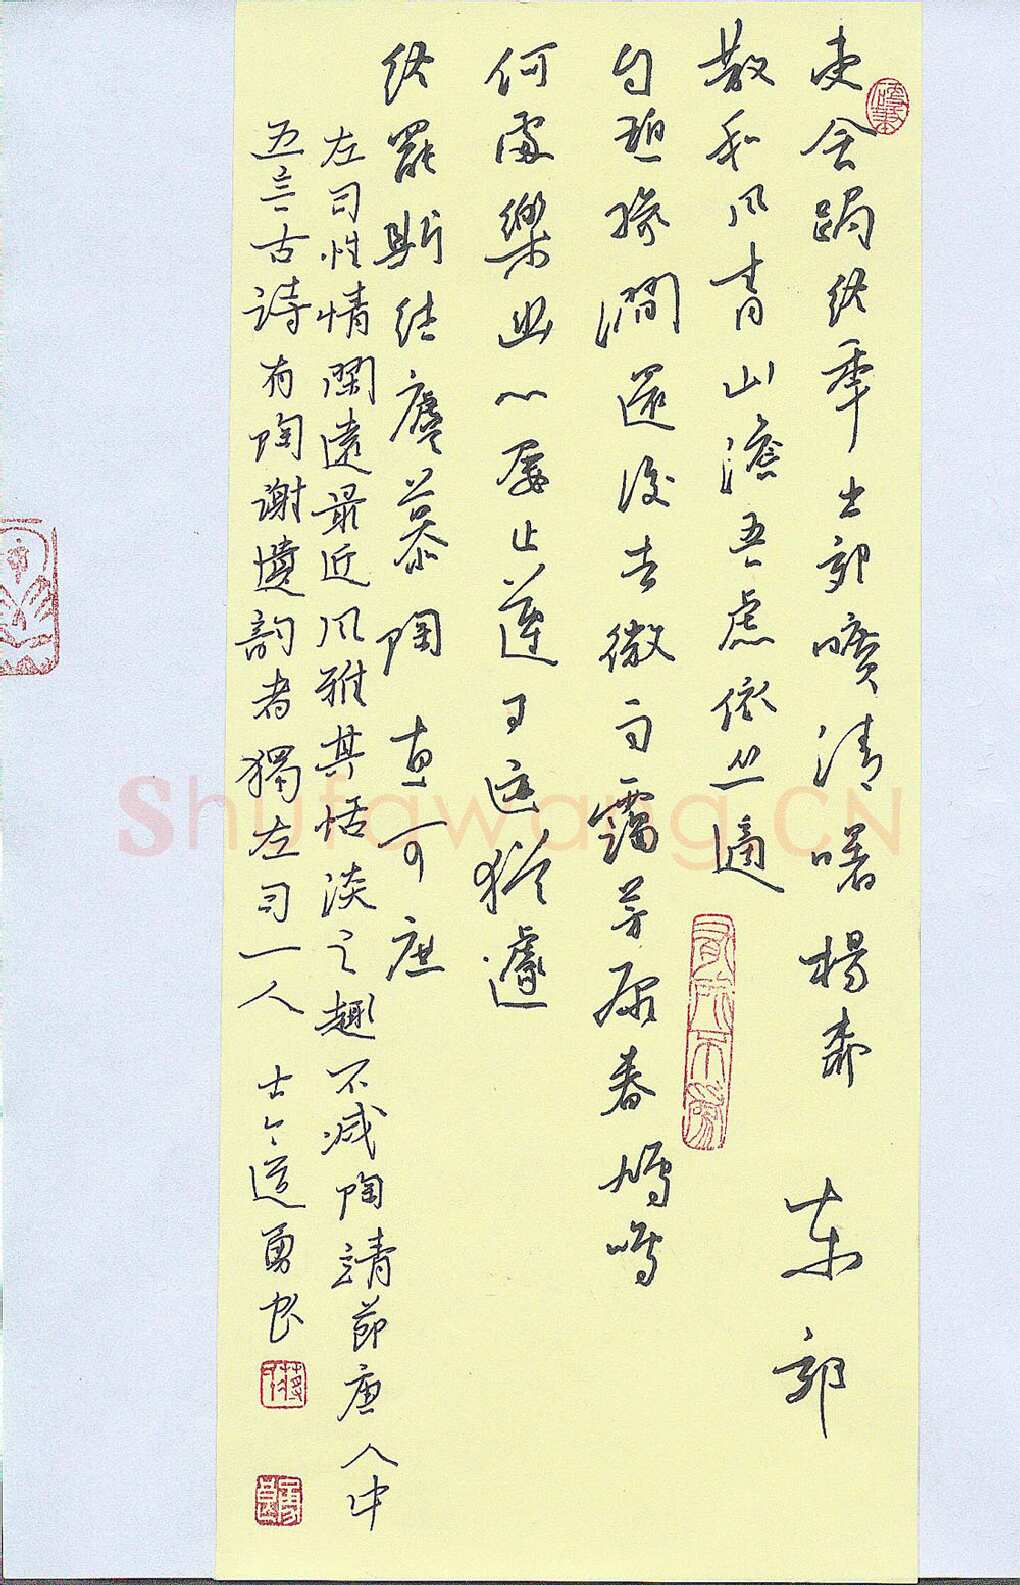 吏舍跼终年出郭曠清曙楊柳 東郊
散和风青山澹吾慮依丛適
自憩緣澗還復去微雨靄芳原春鳩鳴
何處樂幽心屢止遵事迹猶遽
终罷斯结廬慕陶直可庶
左司性情閑遠最近风雅其恬淡之趣不减陶靖節唐人中
五言古詩有陶謝遺韵者獨左司一人 道勇书
Shufawang.CN